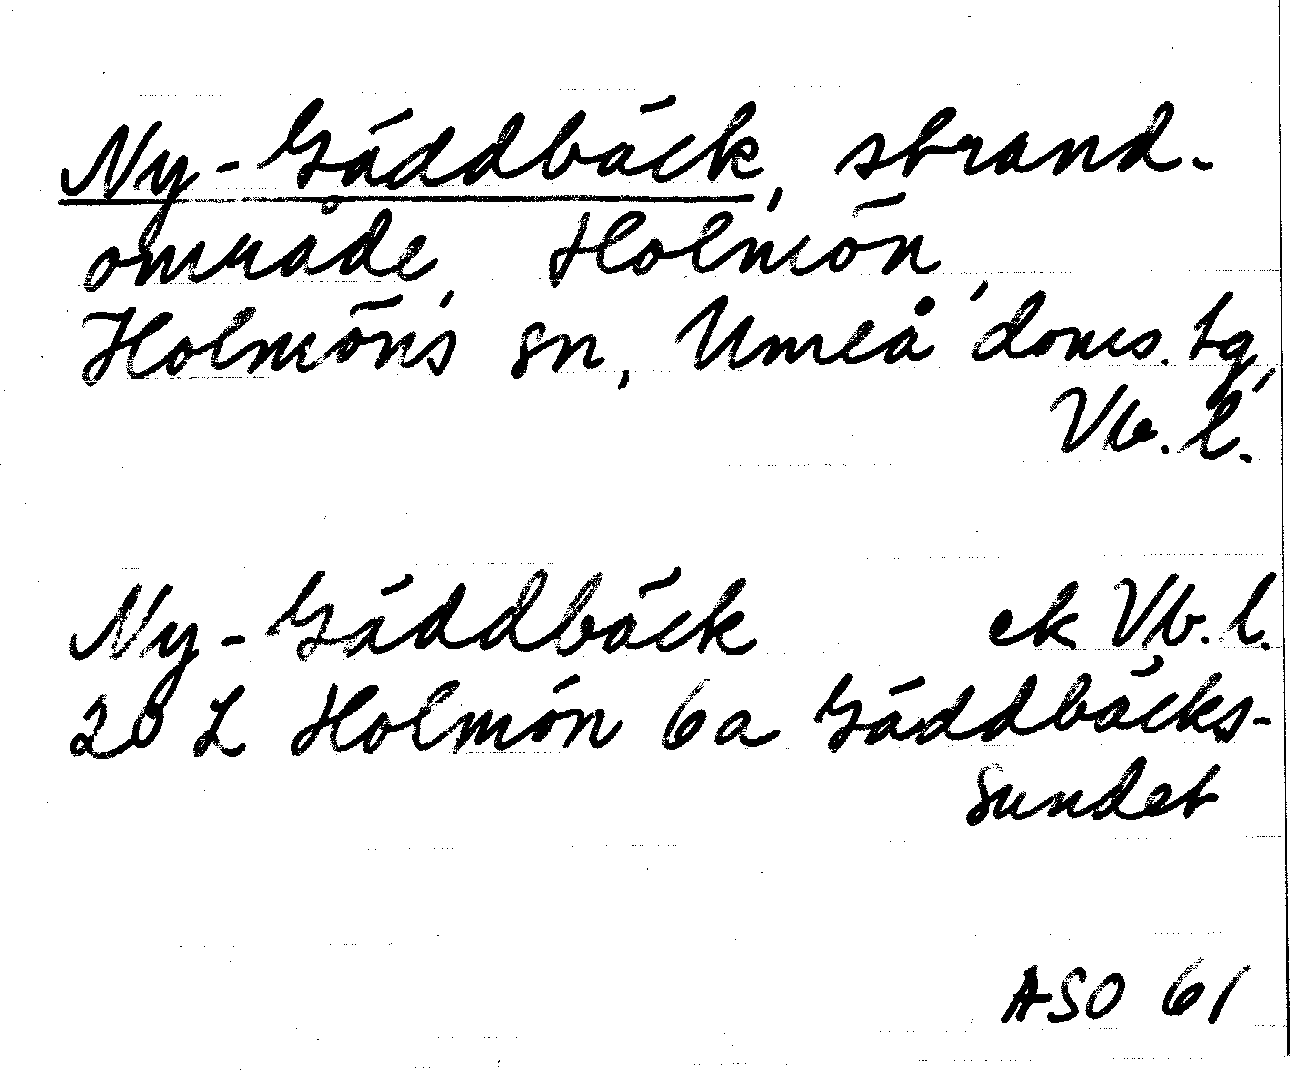 Ny-Gäddbäck, strand-
område, Holmön,
Holmöns sn, Umeå doms. tg,
Vb. l.
Ny-Gäddbäck ek Vb. l.
20 L Holmön 6a Gäddbäcks-
sundet
ASO 61